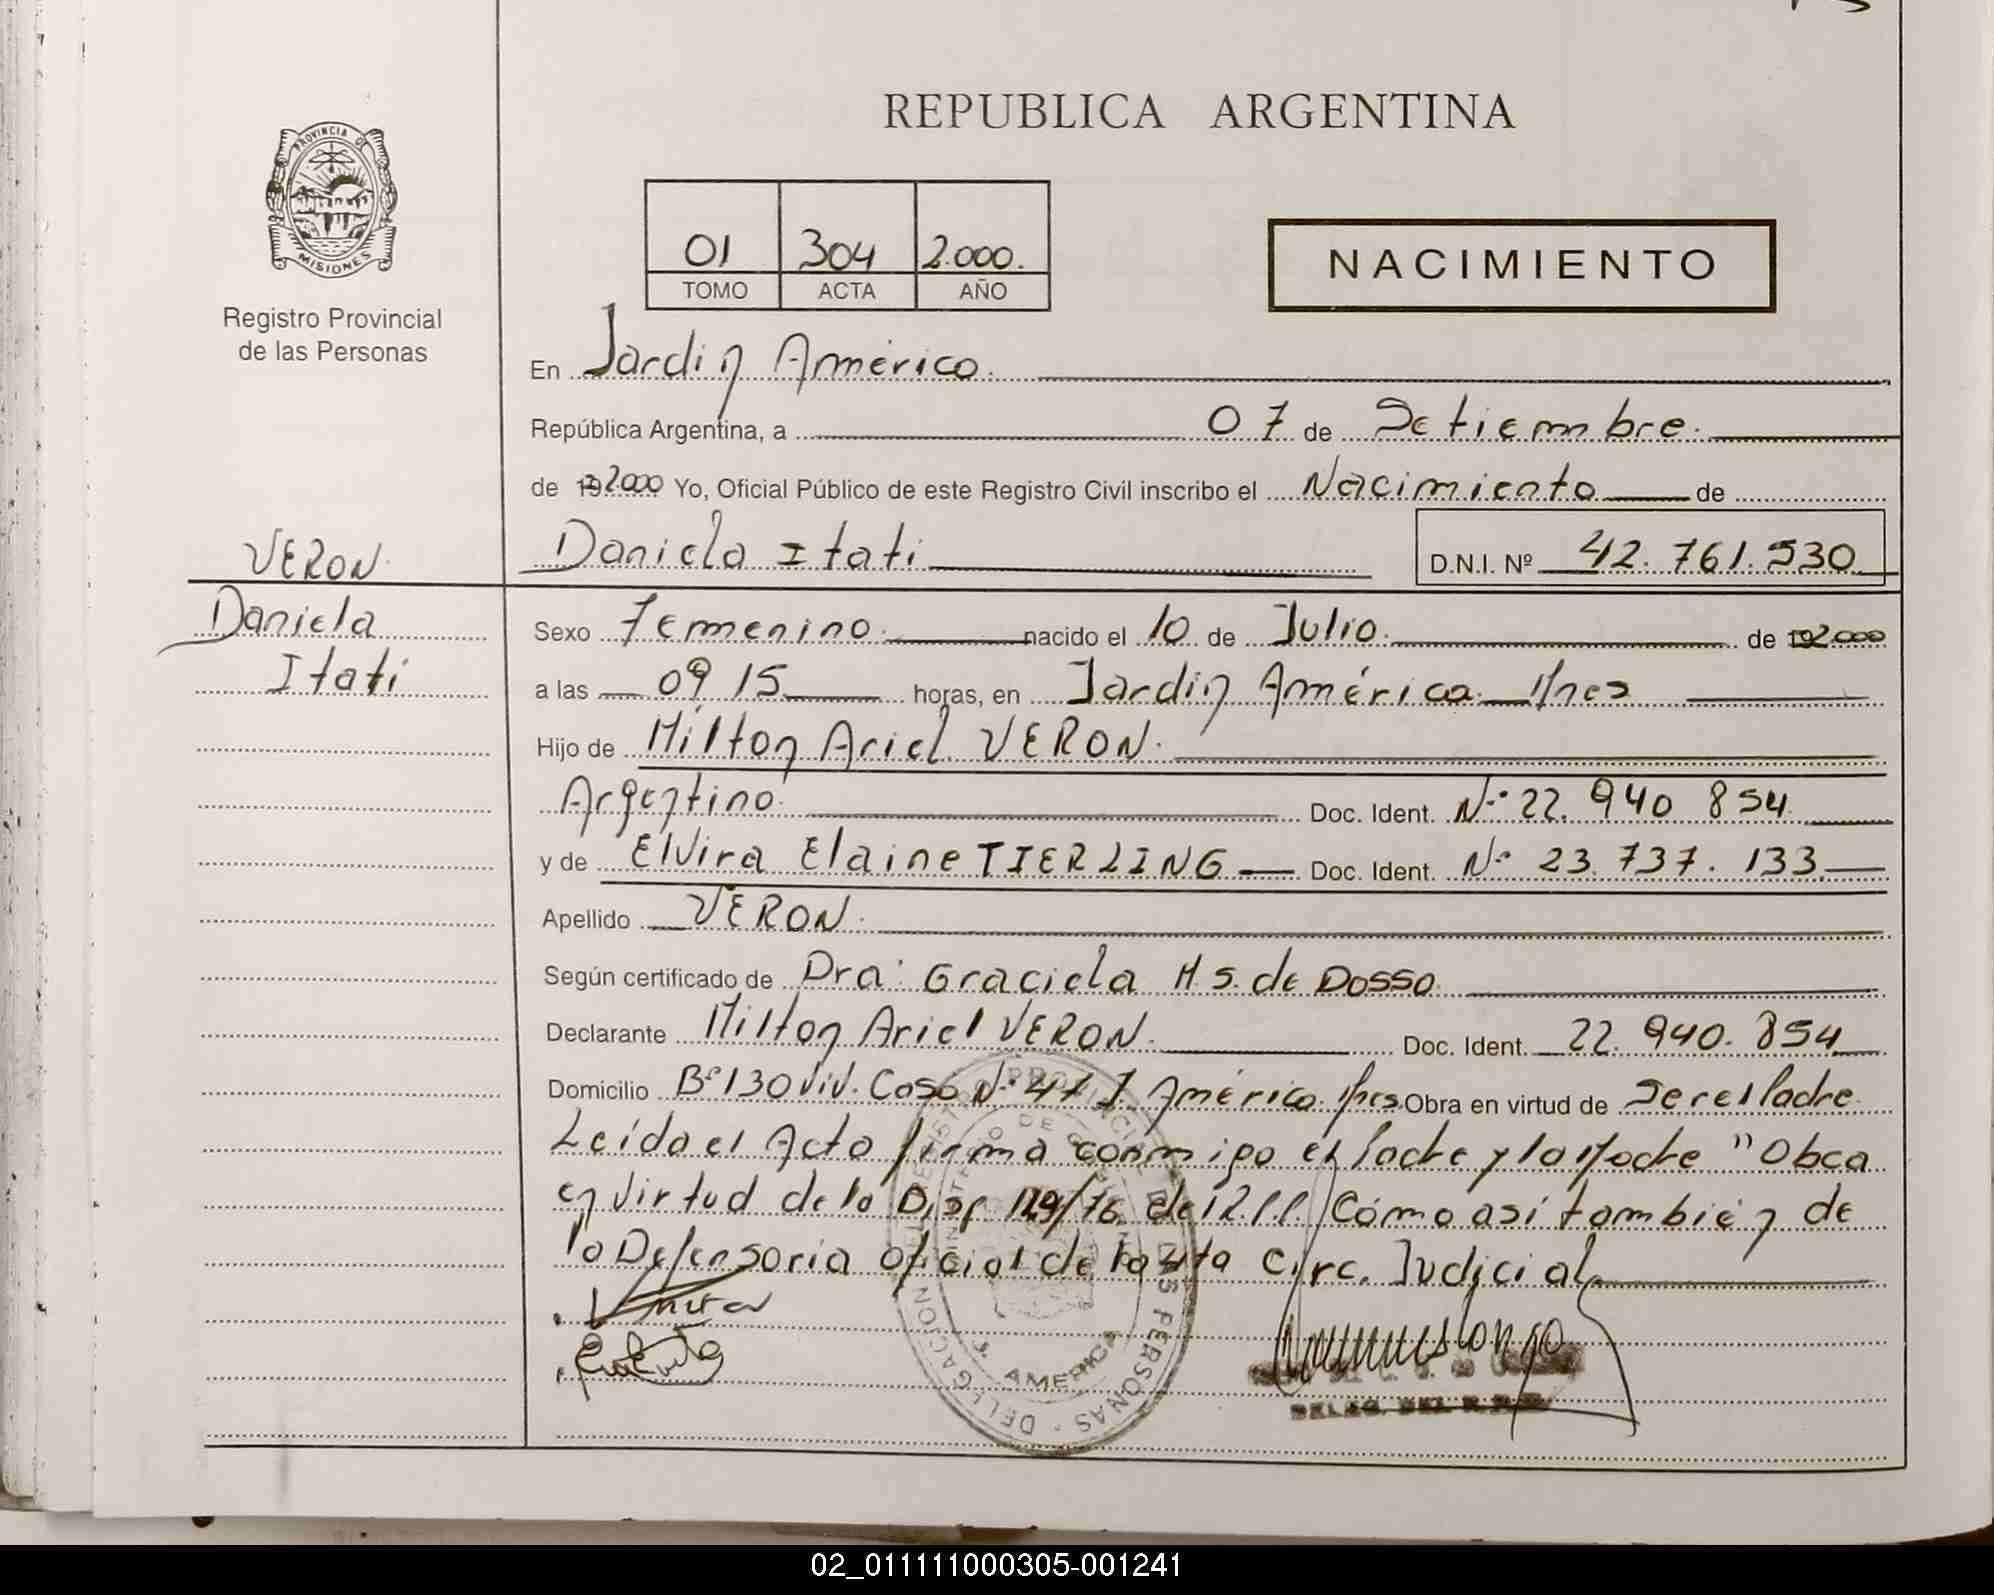 REPUBLICA ARGENTINA
PROVINCIA DE
MISIONES
Registro Provincial
de las Personas
01 304 2.000.
TOMO ACTA AÑO
NACIMIENTO
En Jardin América.
República Argentina, a 07 de Setiembre.
de 192000 Yo, Oficial Público de este Registro Civil inscribo el Nacimiento de
VERON.
Daniela Itati
D.N.I. Nº 42.761.530
Daniela
Itati
Sexo Femenino. nacido el 10 de Julio. de 192.000
a las 09 15 horas, en Jardin América. Mnes
Hijo de Milton Ariel VERON.
Argentino. Doc. Ident. Nº 22.940 854.
y de Elvira Elaine TIERLING Doc. Ident. Nº 23.737.133.
Apellido VERON.
Según certificado de Dra: Graciela M.S. de Dosso.
Declarante Milton Ariel VERON. Doc. Ident. 22.940.854
Domicilio Bº 130 Viv. Casa Nº 47 J. América. Mnes Obra en virtud de Ser el Padre.
Leída el Acta firma conmigo el Padre y la Madre "Obra
en virtud de la Disp 129/76 del R.P.P. Cómo así también de
la Defensoria Oficial de la 4ta Circ. Judicial
DELEGACION
REGISTRO PROVINCIAL DE LAS PERSONAS
MINISTERIO DE
J. AMERICA
DELEG. DEL R.P.P.
02_011111000305-001241